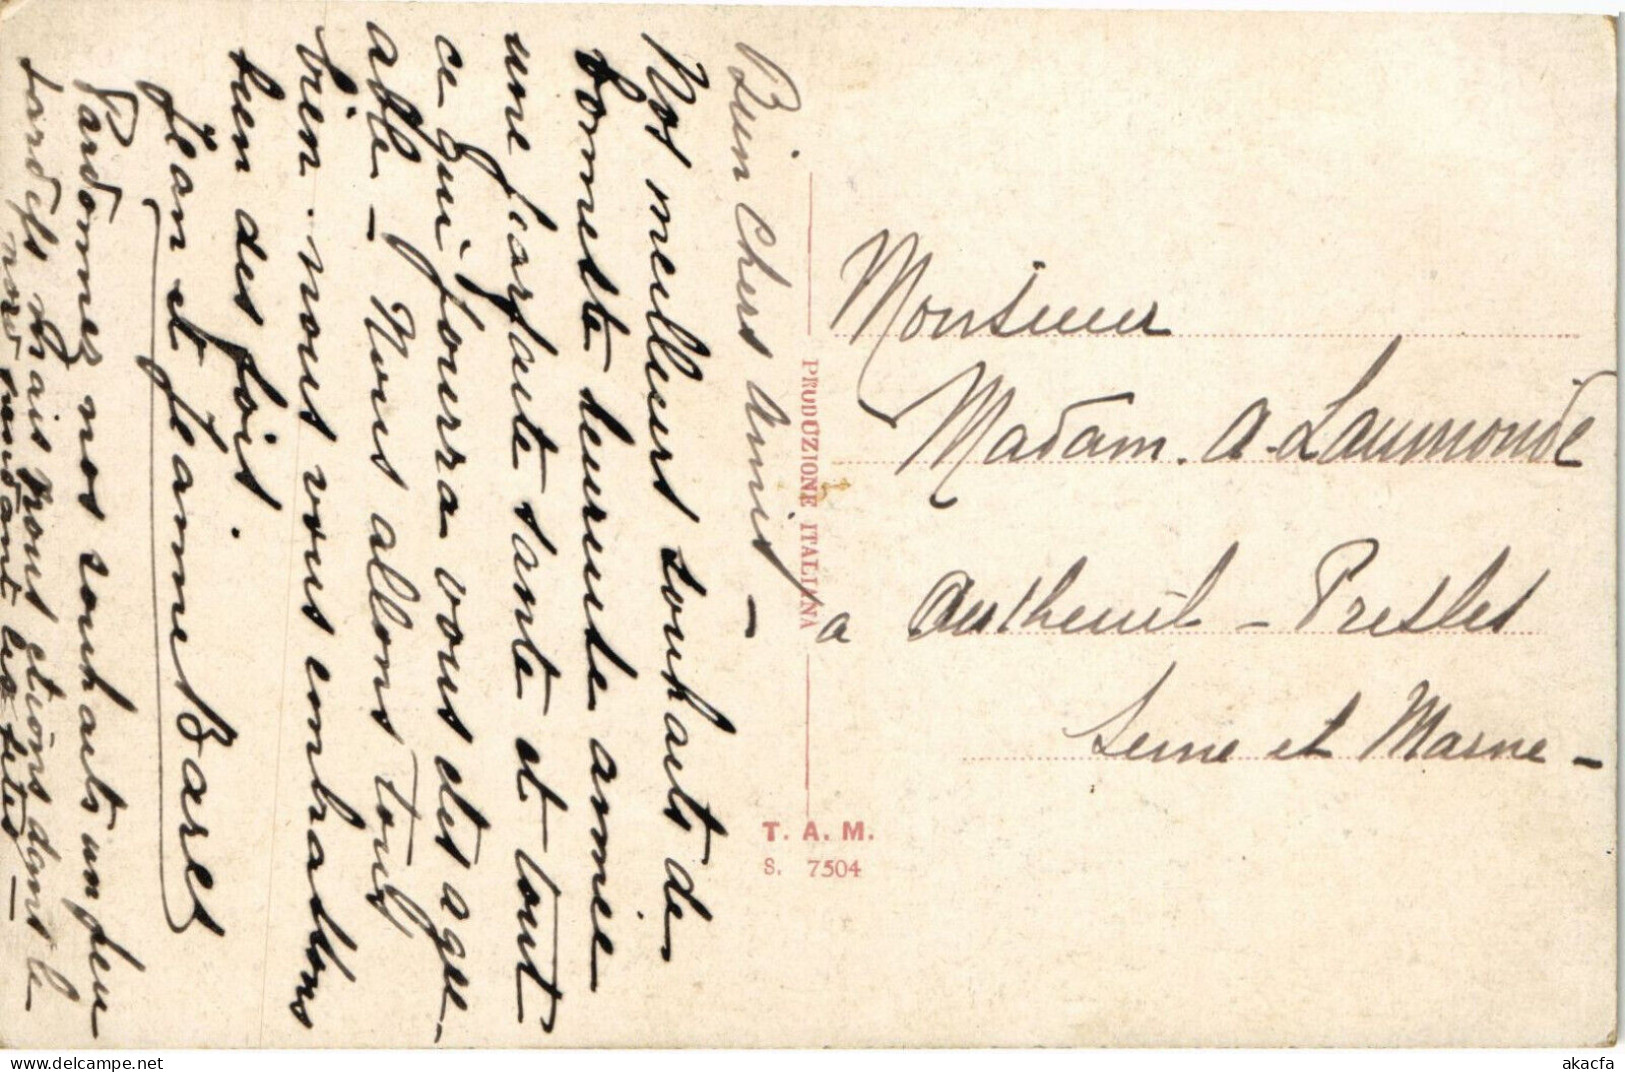 Bien Chers Amis –
Nos meilleurs souhaits de
bonneste heureuse année
une parfaite santé et tout
ce qui pourra vous êtes agré-
able – Nous allons tous
bien. nous vous embrassons
bien des fois.
Jean et Jeanne Barer
Pardonnez nos souhaits un peu
tardifs mais nous étions dans le
nord pendant les fêtes –
Monsieur
Madam. A. Laumonde
a Autheuil – Presles
Seine et Marne –
PRODUZIONE ITALIANA
T. A. M.
S. 7504
akacfa